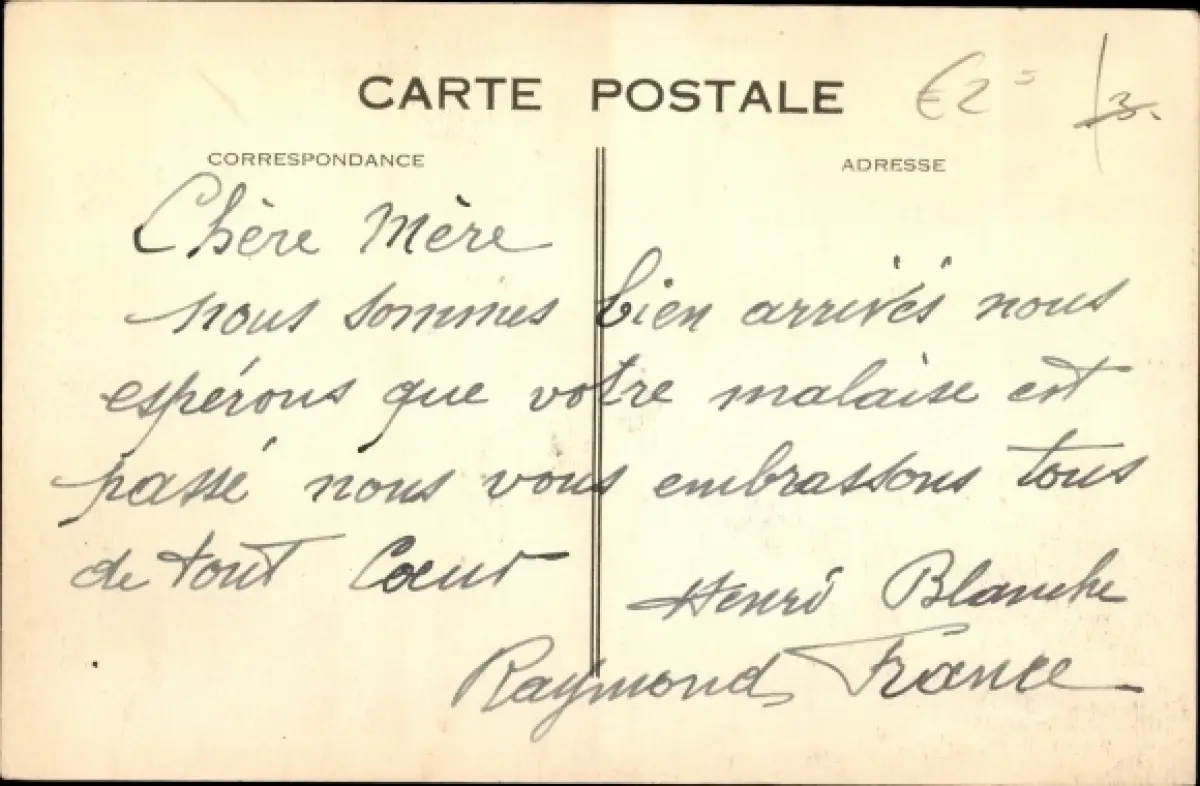 CARTE POSTALE
€2 5
3.
CORRESPONDANCE
ADRESSE
Chère Mère
nous sommes bien arrivés nous
espérons que votre malaise est
passé nous vous embrassons tous
de tout Cœur
Henri Blanche
Raymond France